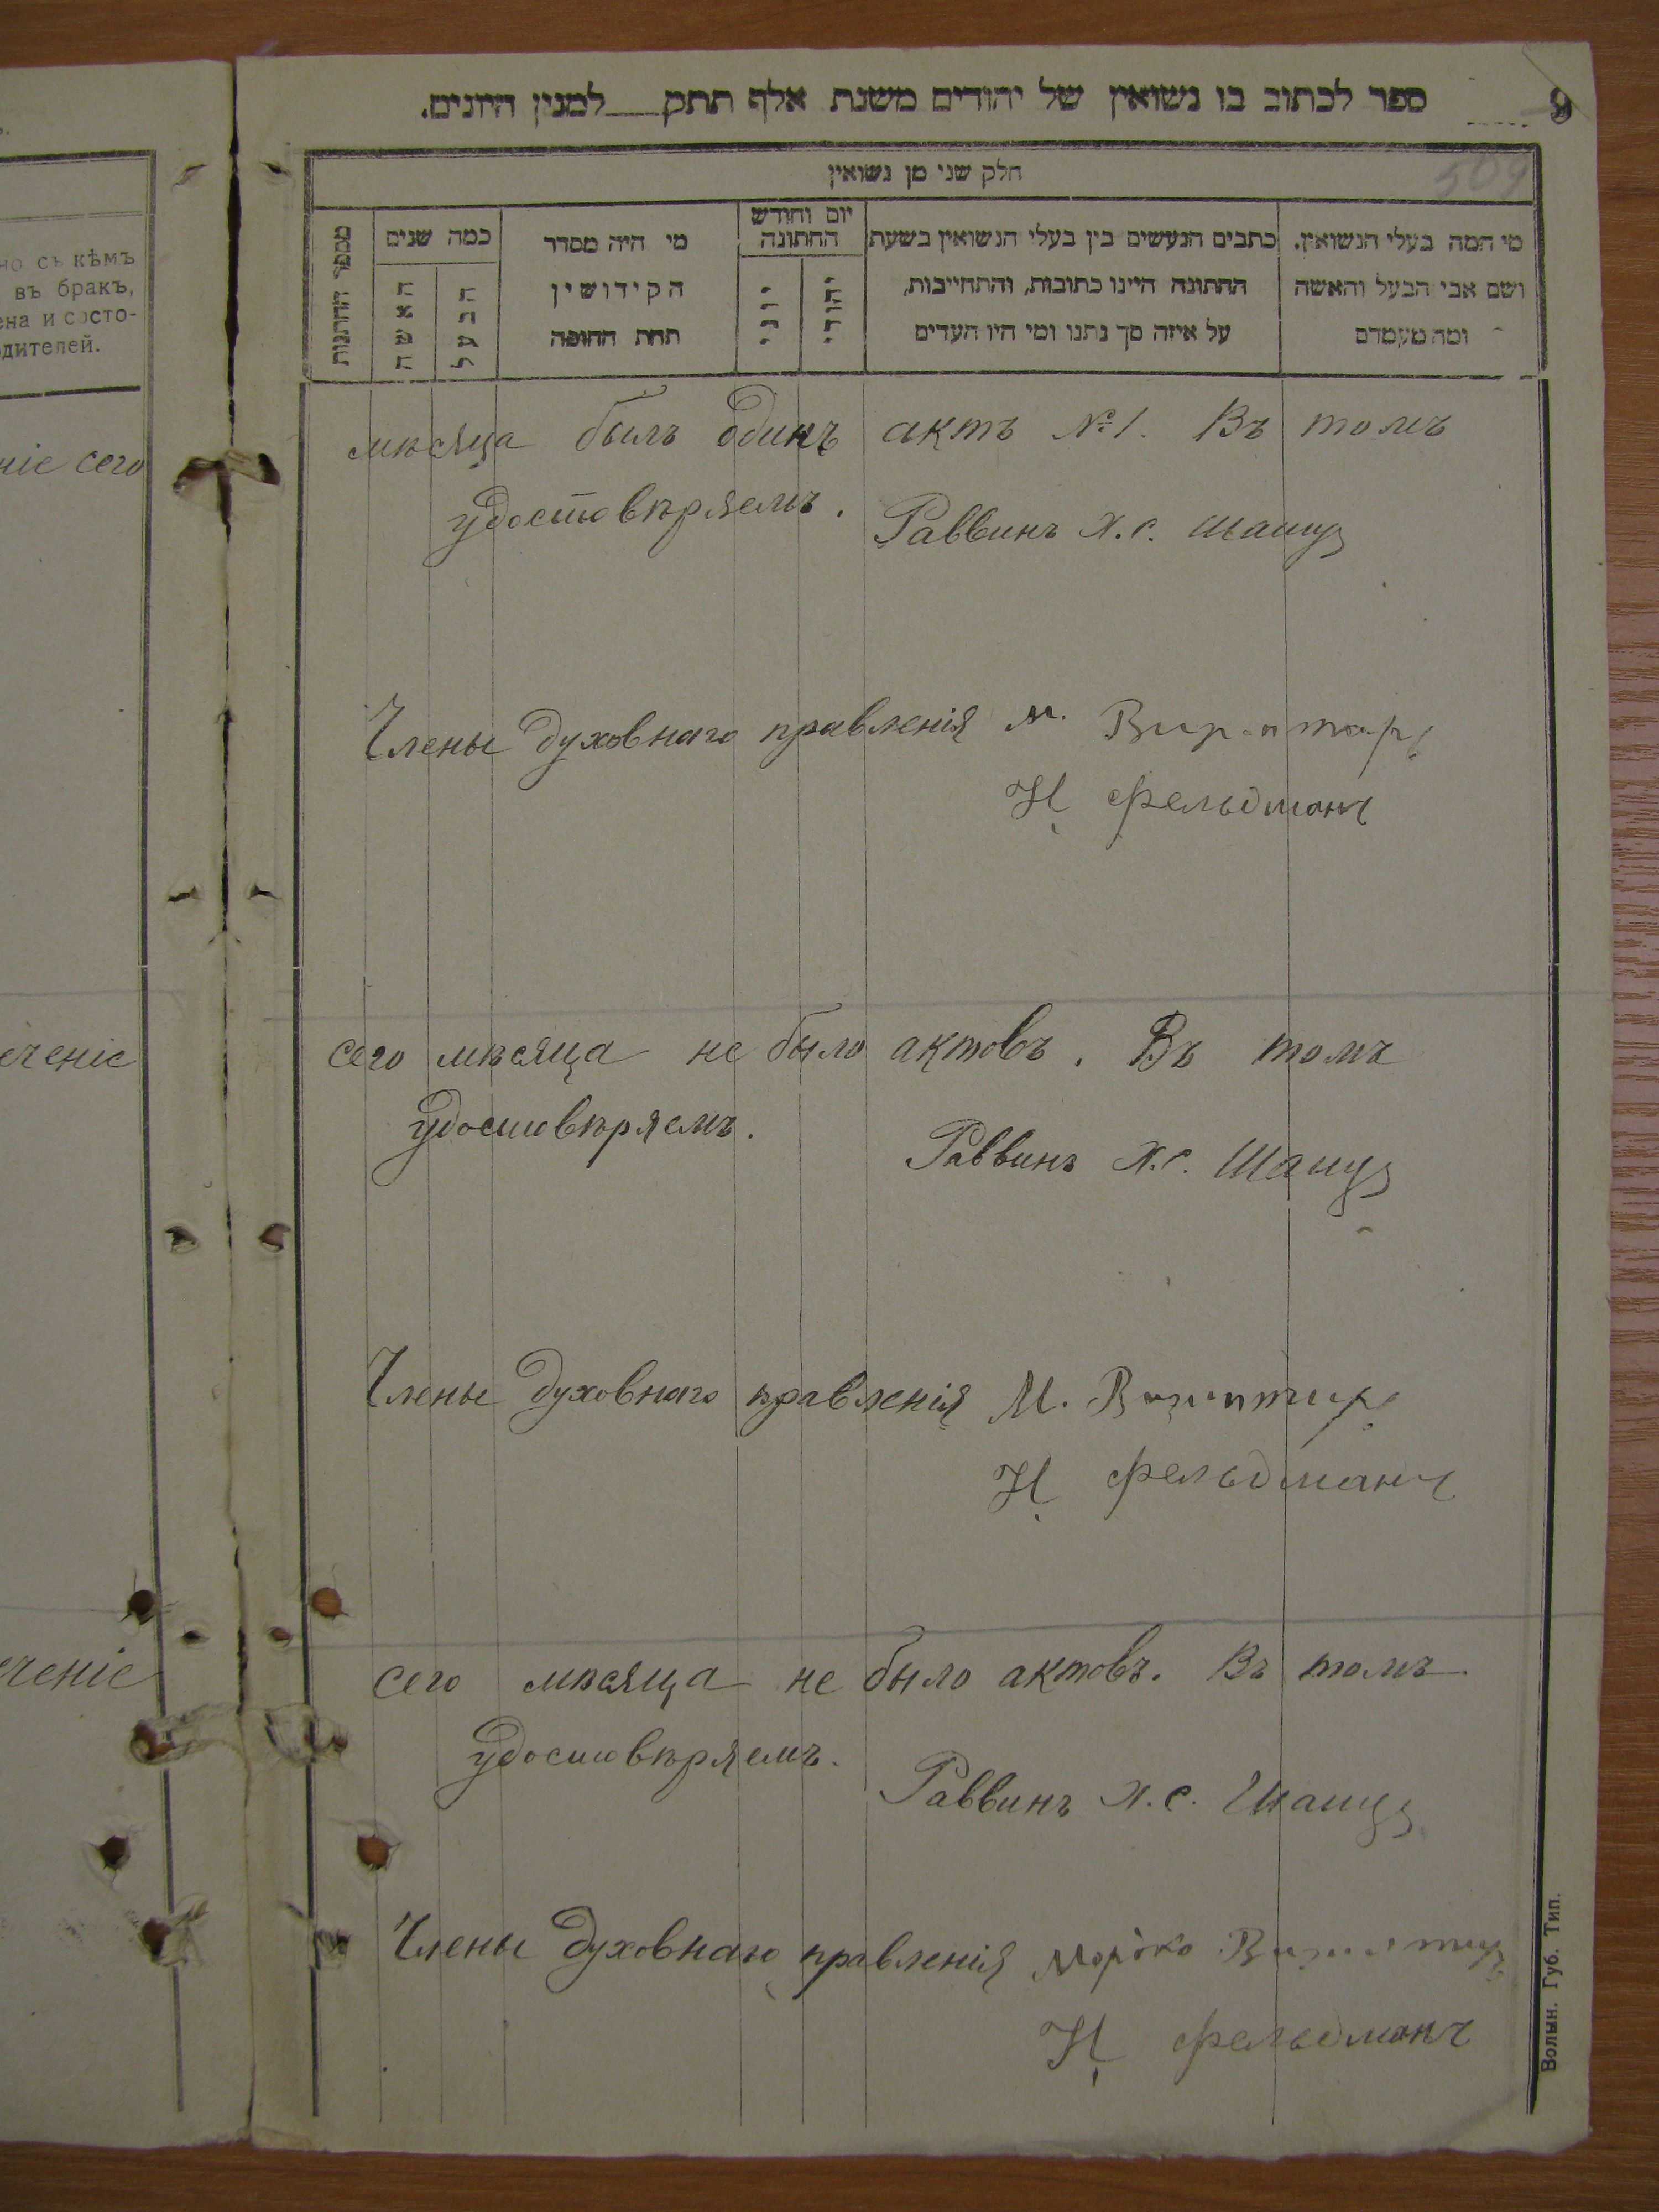 ספר לכתוב בו נשואין של יהודים משנת אלף תתק למנין היונים.
9
509
חלק שני מן נשואין
מי המה בעלי הנשואין, ושם אבי הבעל והאשה ומה מעמדם
כתבים הנעשים בין בעלי הנשואין בשעת החתונה היינו כתובות, והתחייבות, על איזה סך נתנו ומי היו העדים
יום וחודש החתונה
יהודי
יוני
מי היה מסדר הקידושין תחת החופה
כמה שנים
הבעל
האשה
מספר החתונות
но съ кѣмъ
въ бракъ,
ена и состо-
одителей.
ніе сего
мѣсяца былъ одинъ актъ №1. Въ томъ
удостовѣряемъ.
Раввинъ Х.С.
Члены духовнаго правленія М.
Н Фельдманъ
еченіе
сего мѣсяца не было актовъ. Въ томъ
удостовѣряемъ.
Раввинъ Х.С.
Члены духовнаго правленія М.
Н Фельдманъ
еченіе
сего мѣсяца не было актовъ. Въ томъ
удостовѣряемъ.
Раввинъ Х.С.
Члены духовнаго правленія
Н Фельдманъ
Волын. Губ. Тип.